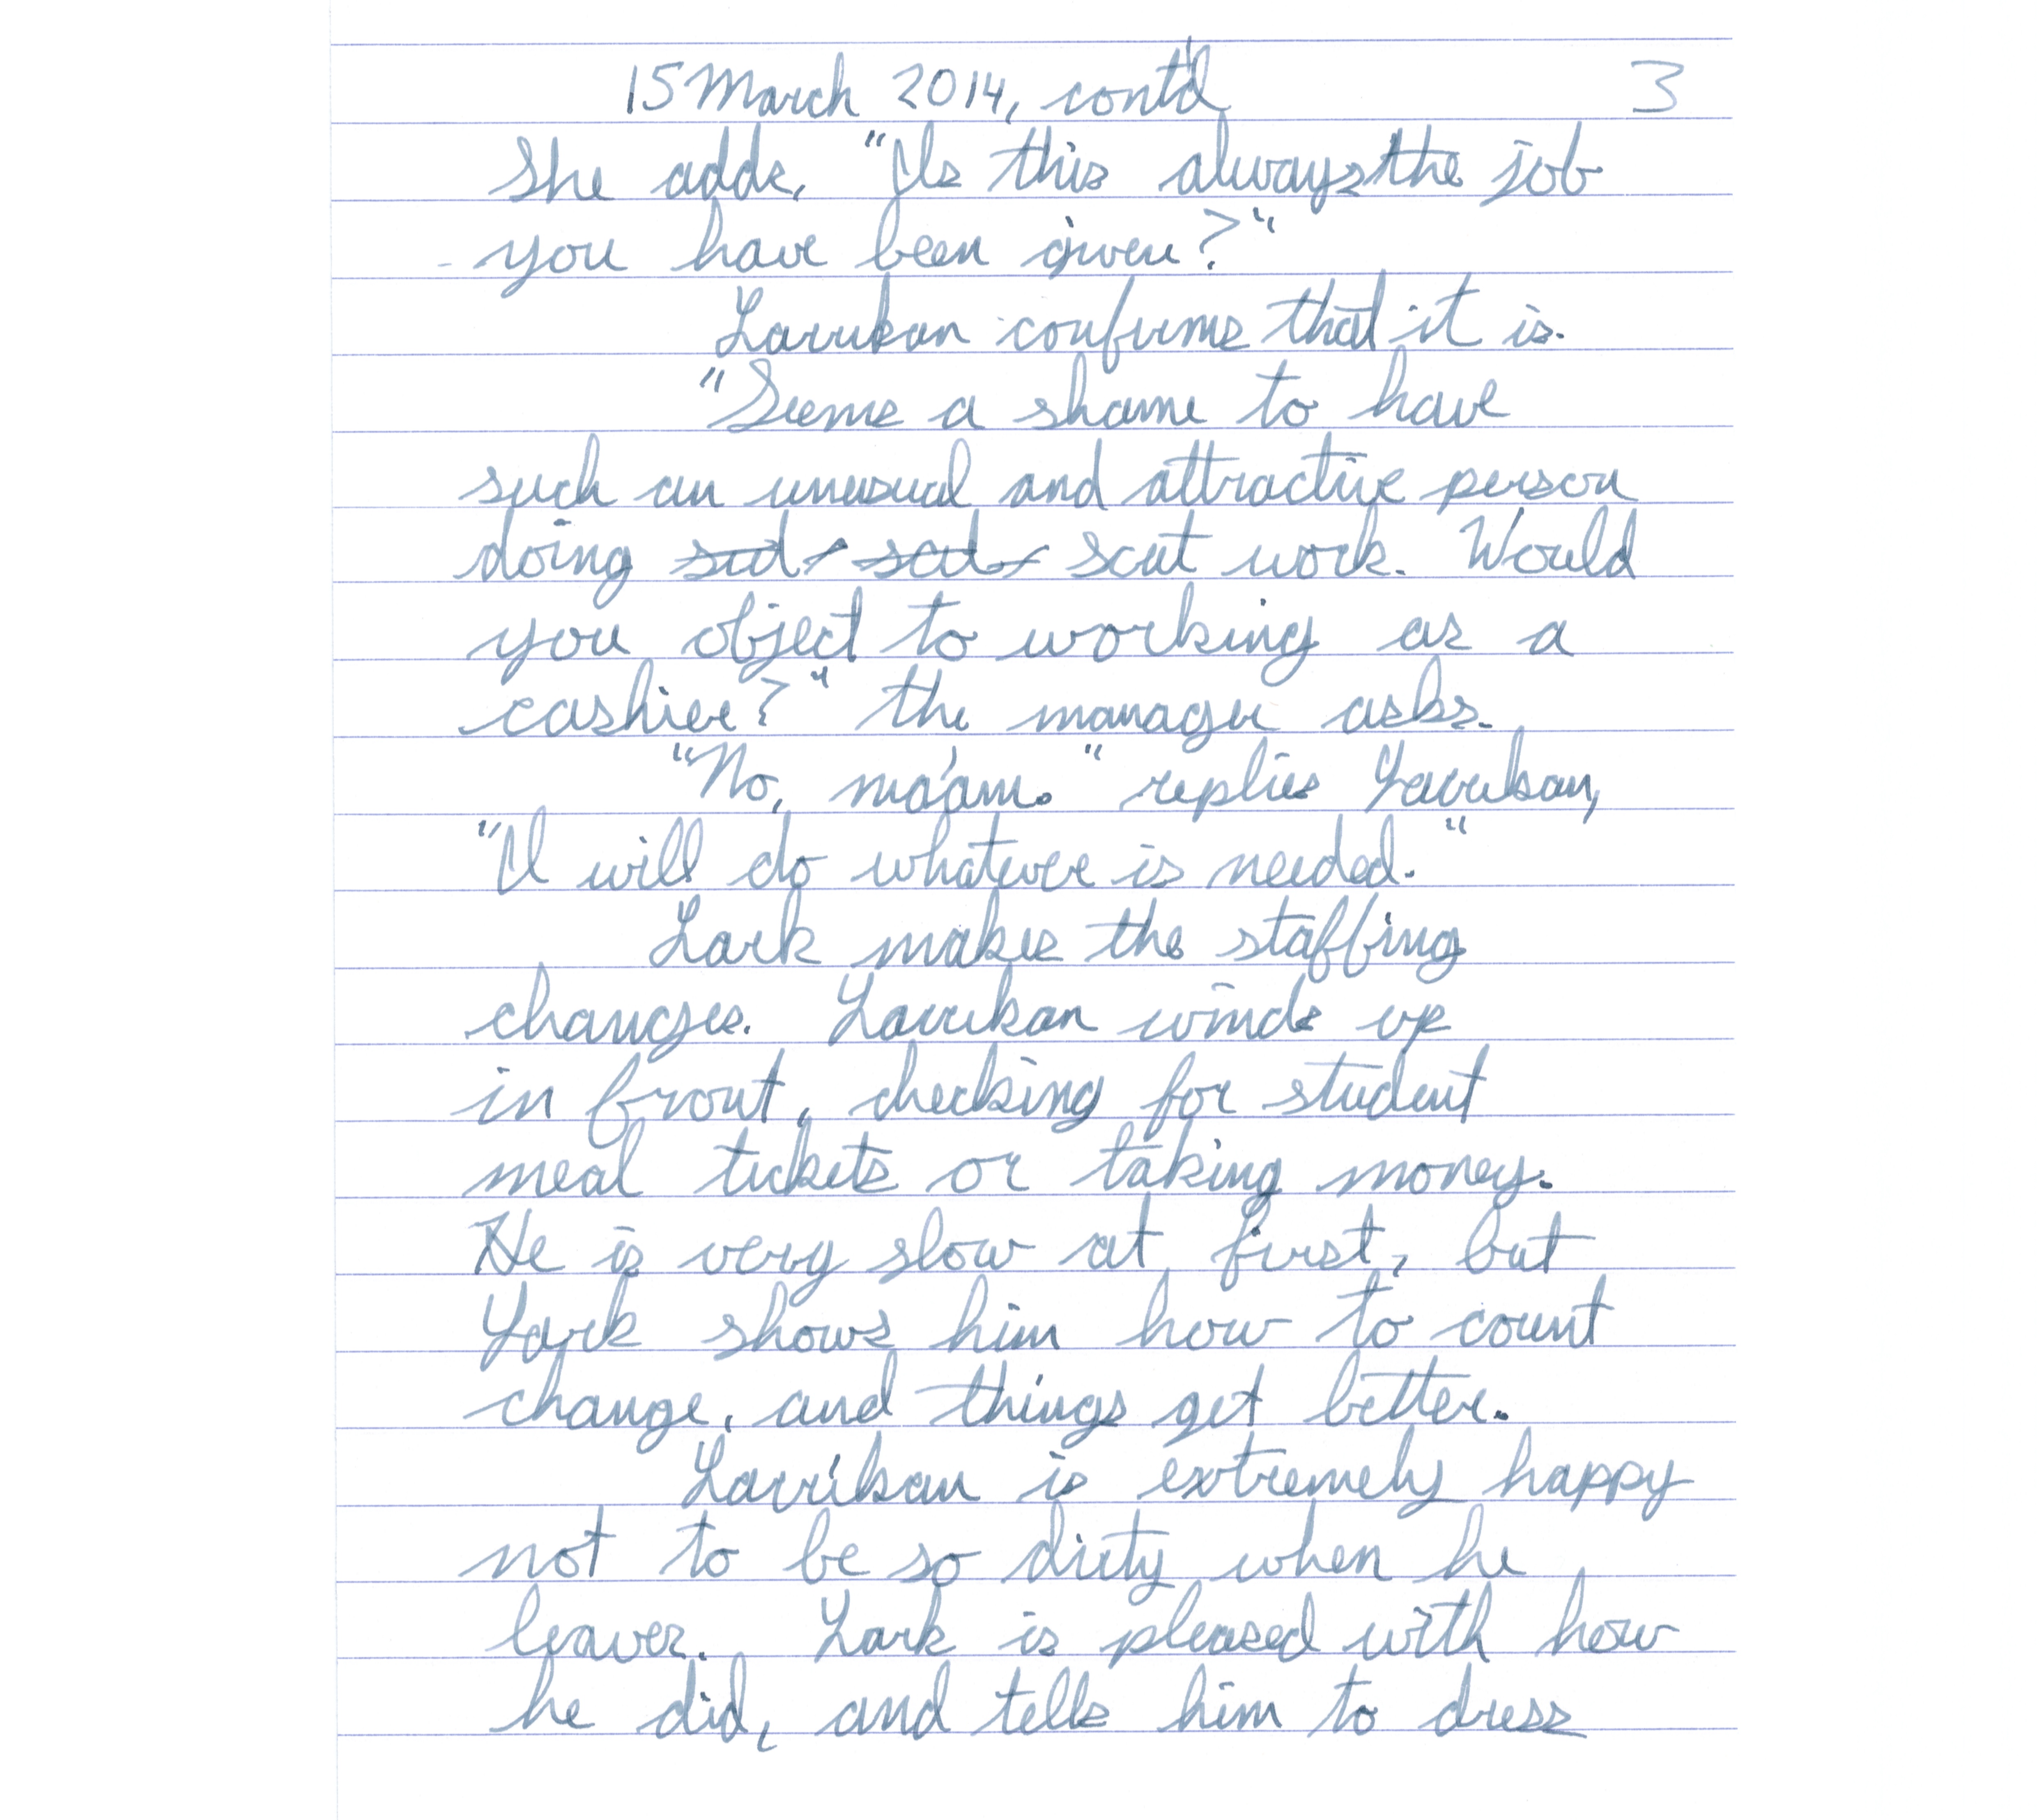 15 March 2014, cont'd 3
She adds, "Is this always the job
you have been given?"
Larrikan confirms that it is.
"Seems a shame to have
such an unusual and attractive person
doing scut work. Would
you object to working as a
cashier?" the manager asks.
"No, ma'am." replies Larrikan,
"I will do whatever is needed."
Lark makes the staffing
changes. Larrikan winds up
in front, checking for student
meal tickets or taking money.
He is very slow at first, but
Lark shows him how to count
change, and things get better.
Larrikan is extremely happy
not to be so dirty when he
leaves. Lark is pleased with how
he did, and tells him to dress